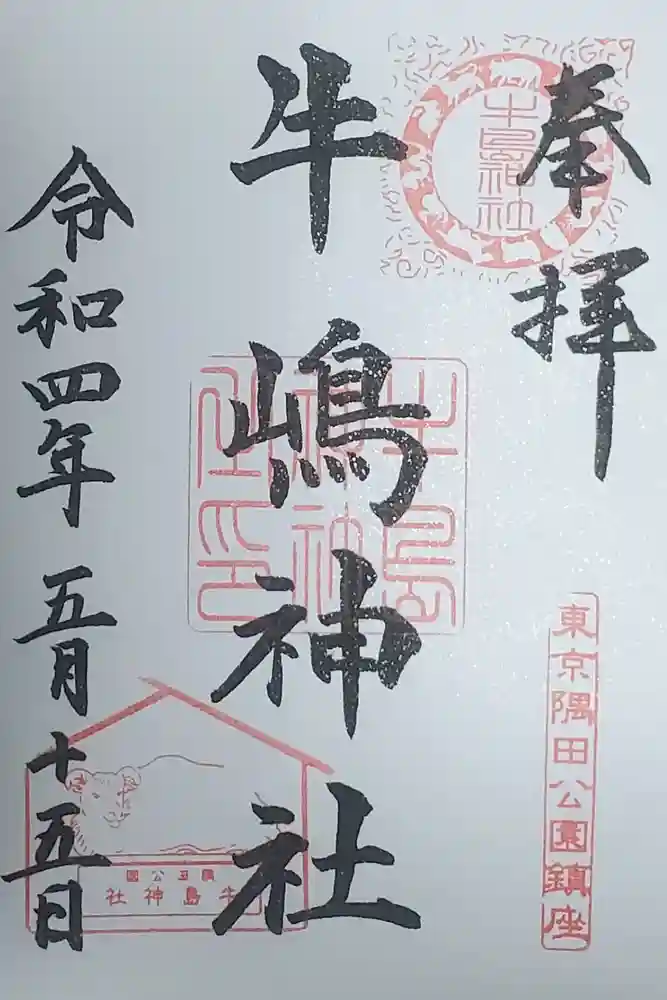 奉拝
牛島神社
東京隅田公園鎮座
牛嶋神社
牛島神社
令和四年 五月十五日
牛島神社